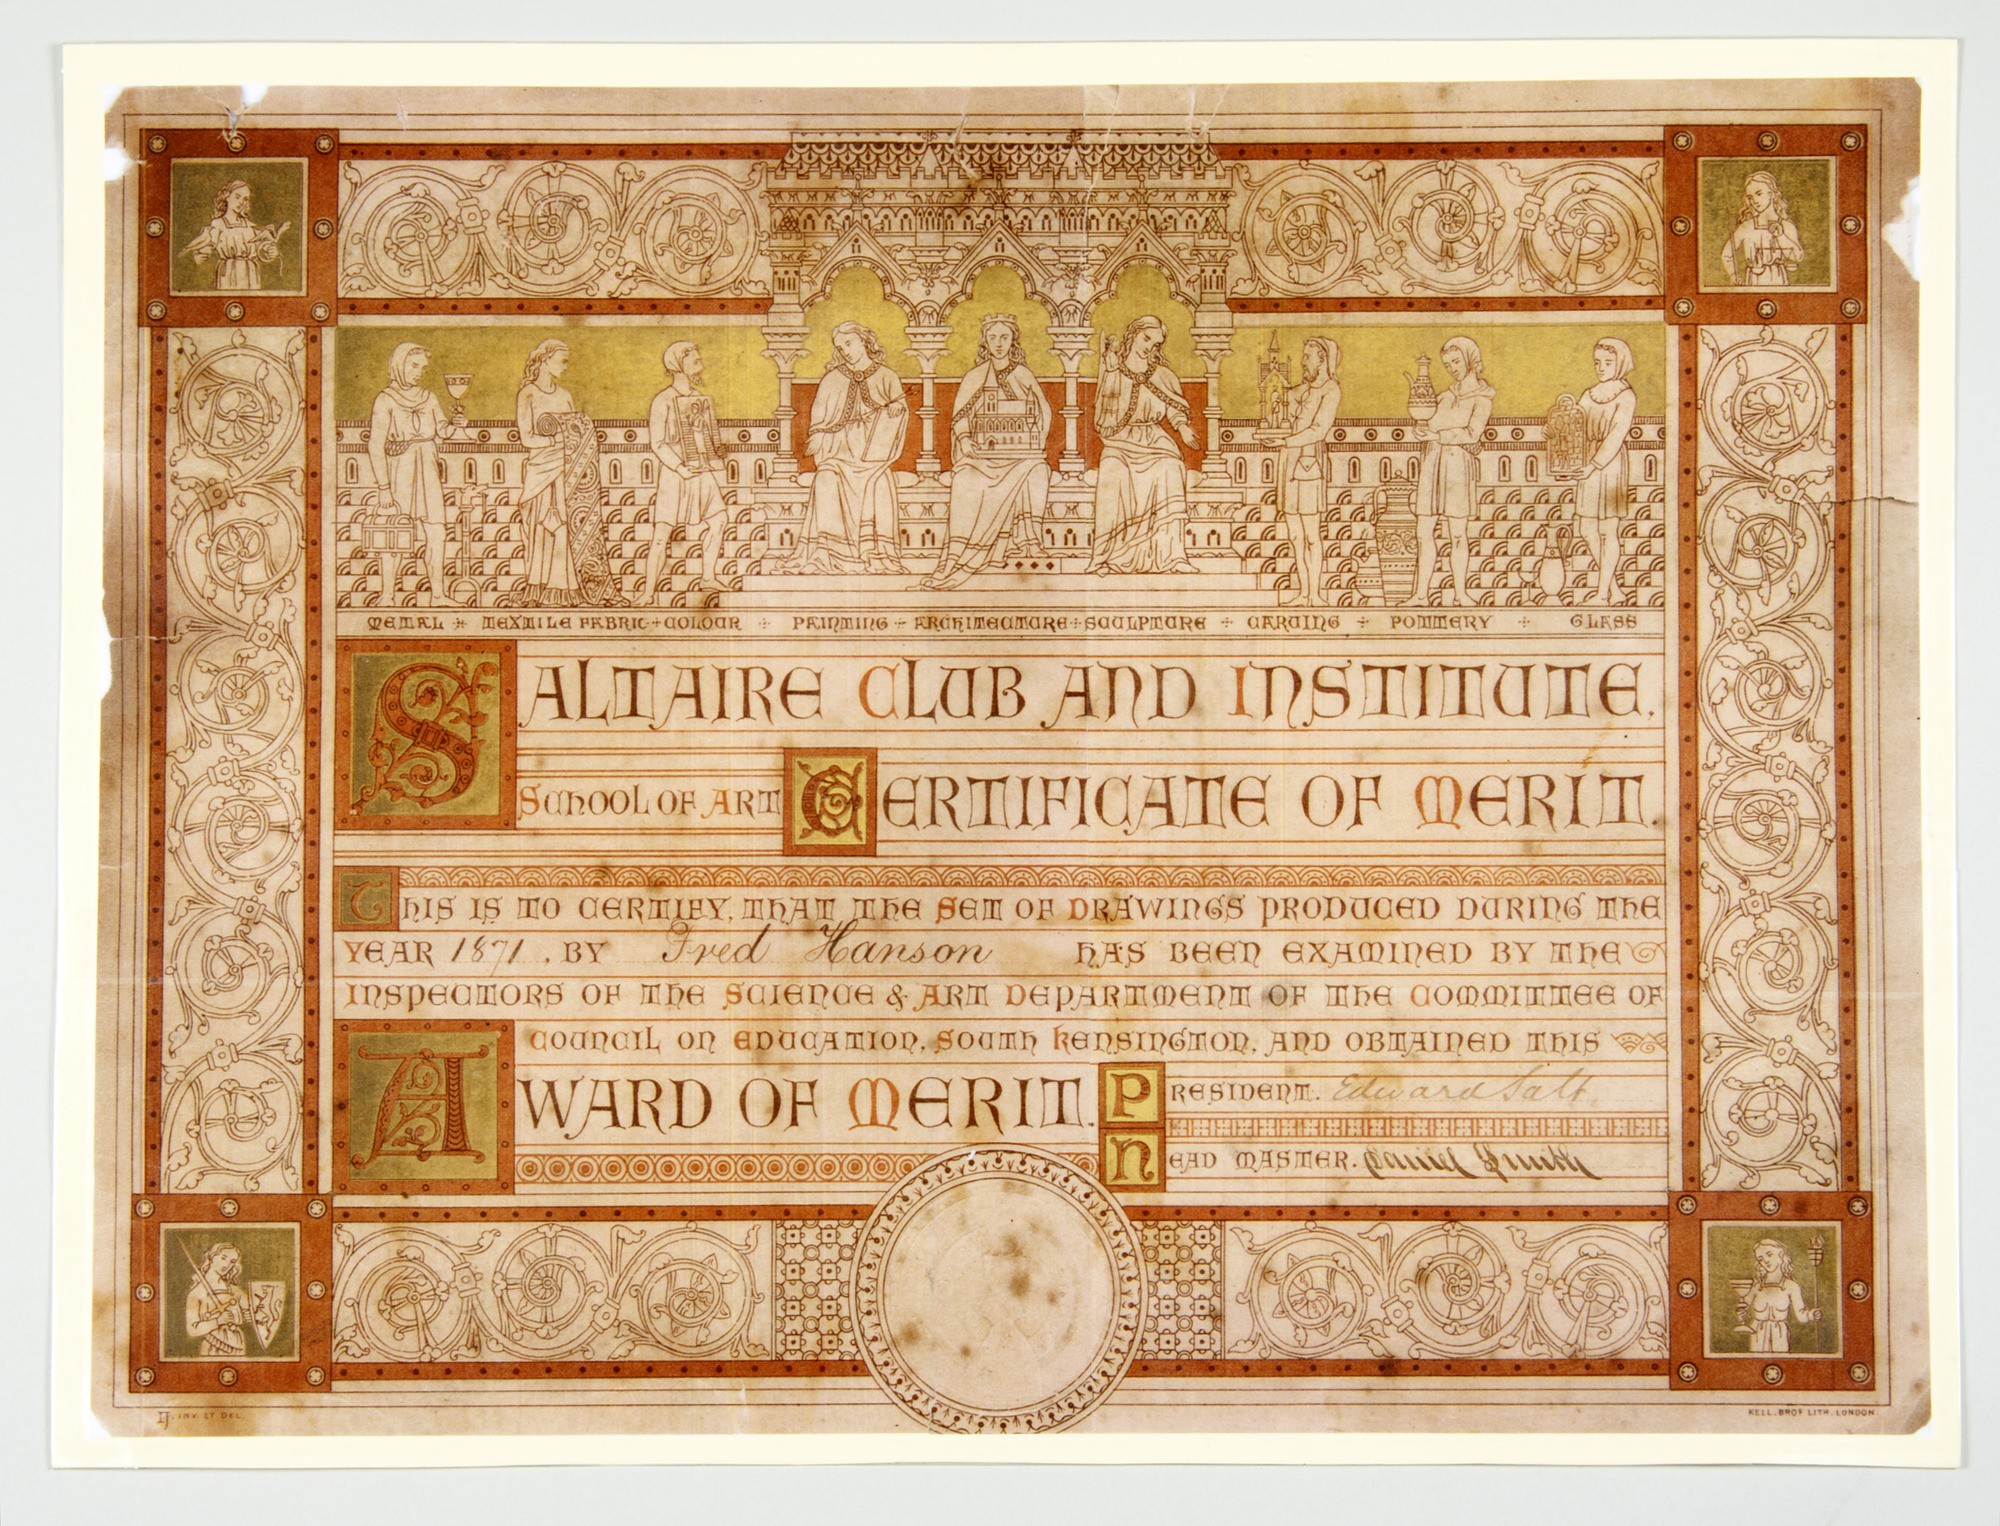 METAL ÷ TEXTILE FABRIC ÷ COLOUR ÷ PAINTING ÷ ARCHITECTURE ÷ SCULPTURE ÷ CARVING ÷ POTTERY ÷ GLASS
SALTAIRE CLUB AND INSTITUTE.
SCHOOL OF ART CERTIFICATE OF MERIT.
THIS IS TO CERTIFY, THAT THE SET OF DRAWINGS PRODUCED DURING THE
YEAR 1871, BY Fred Hanson HAS BEEN EXAMINED BY THE
INSPECTORS OF THE SCIENCE & ART DEPARTMENT OF THE COMMITTEE OF
COUNCIL ON EDUCATION, SOUTH KENSINGTON, AND OBTAINED THIS
AWARD OF MERIT.
PRESIDENT. Edward Salt
HEAD MASTER. Daniel Smith
INV. ET DEL.
KELL. BROS LITH. LONDON.